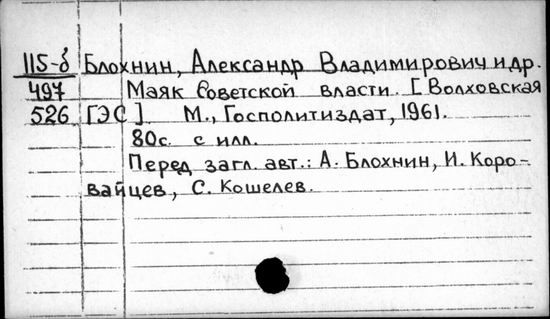 115-б Блохнин, Александр Владимирович и др.
497 Маяк Советской власти. [Волховская
526 ГЭС]. М., Госполитиздат, 1961.
80с. с илл.
Перед загл. авт.: А. Блохнин, И. Коро-
вайцев, С. Кошелев.